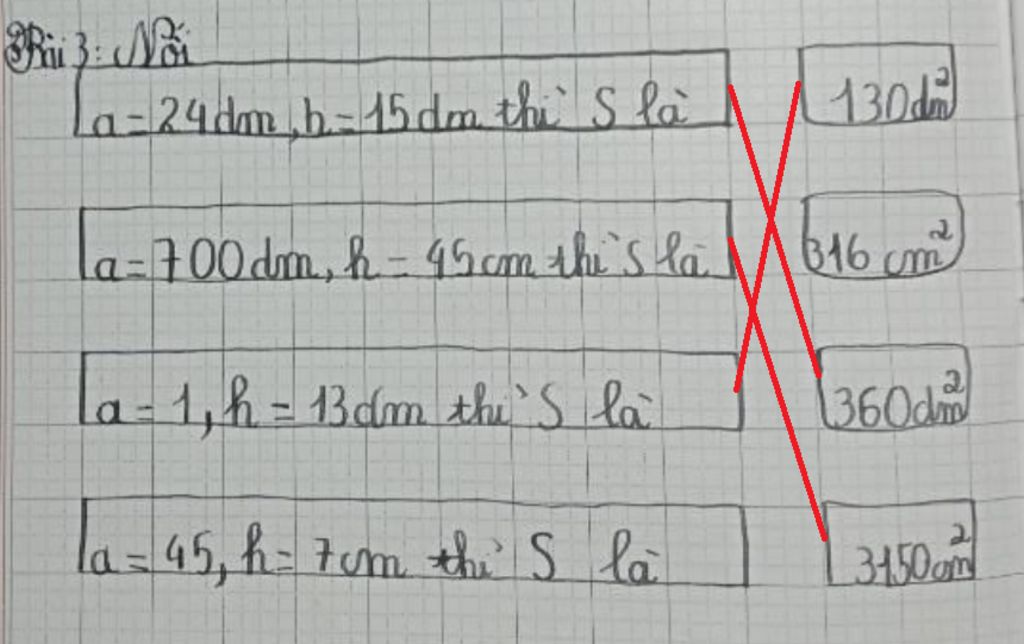 Bài 3: Nối
a = 24 dm, h = 15 dm thì S là
130 dm²
a = 700 dm, h = 45 cm thì S là
316 cm²
a = 1, h = 13 dm thì S là
360 dm²
a = 45, h = 7 cm thì S là
3150 cm²